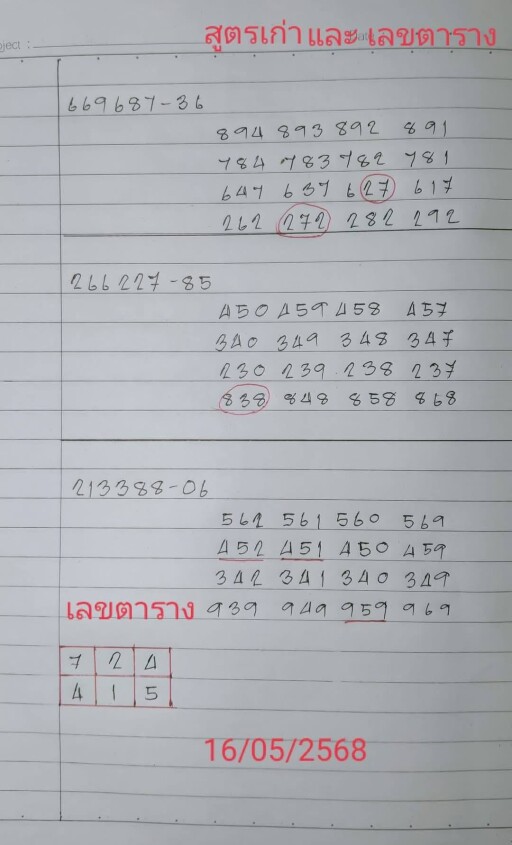 สูตรเก่า และ เลขตาราง
669687-36
894 893 892 891
784 783 782 781
647 637 627 617
262 272 282 292
266227-85
450 459 458 457
340 349 348 347
230 239 238 237
838 848 858 868
213388-06
562 561 560 569
452 451 450 459
342 341 340 349
เลขตาราง 939 949 959 969
7 2 4
4 1 5
16/05/2568